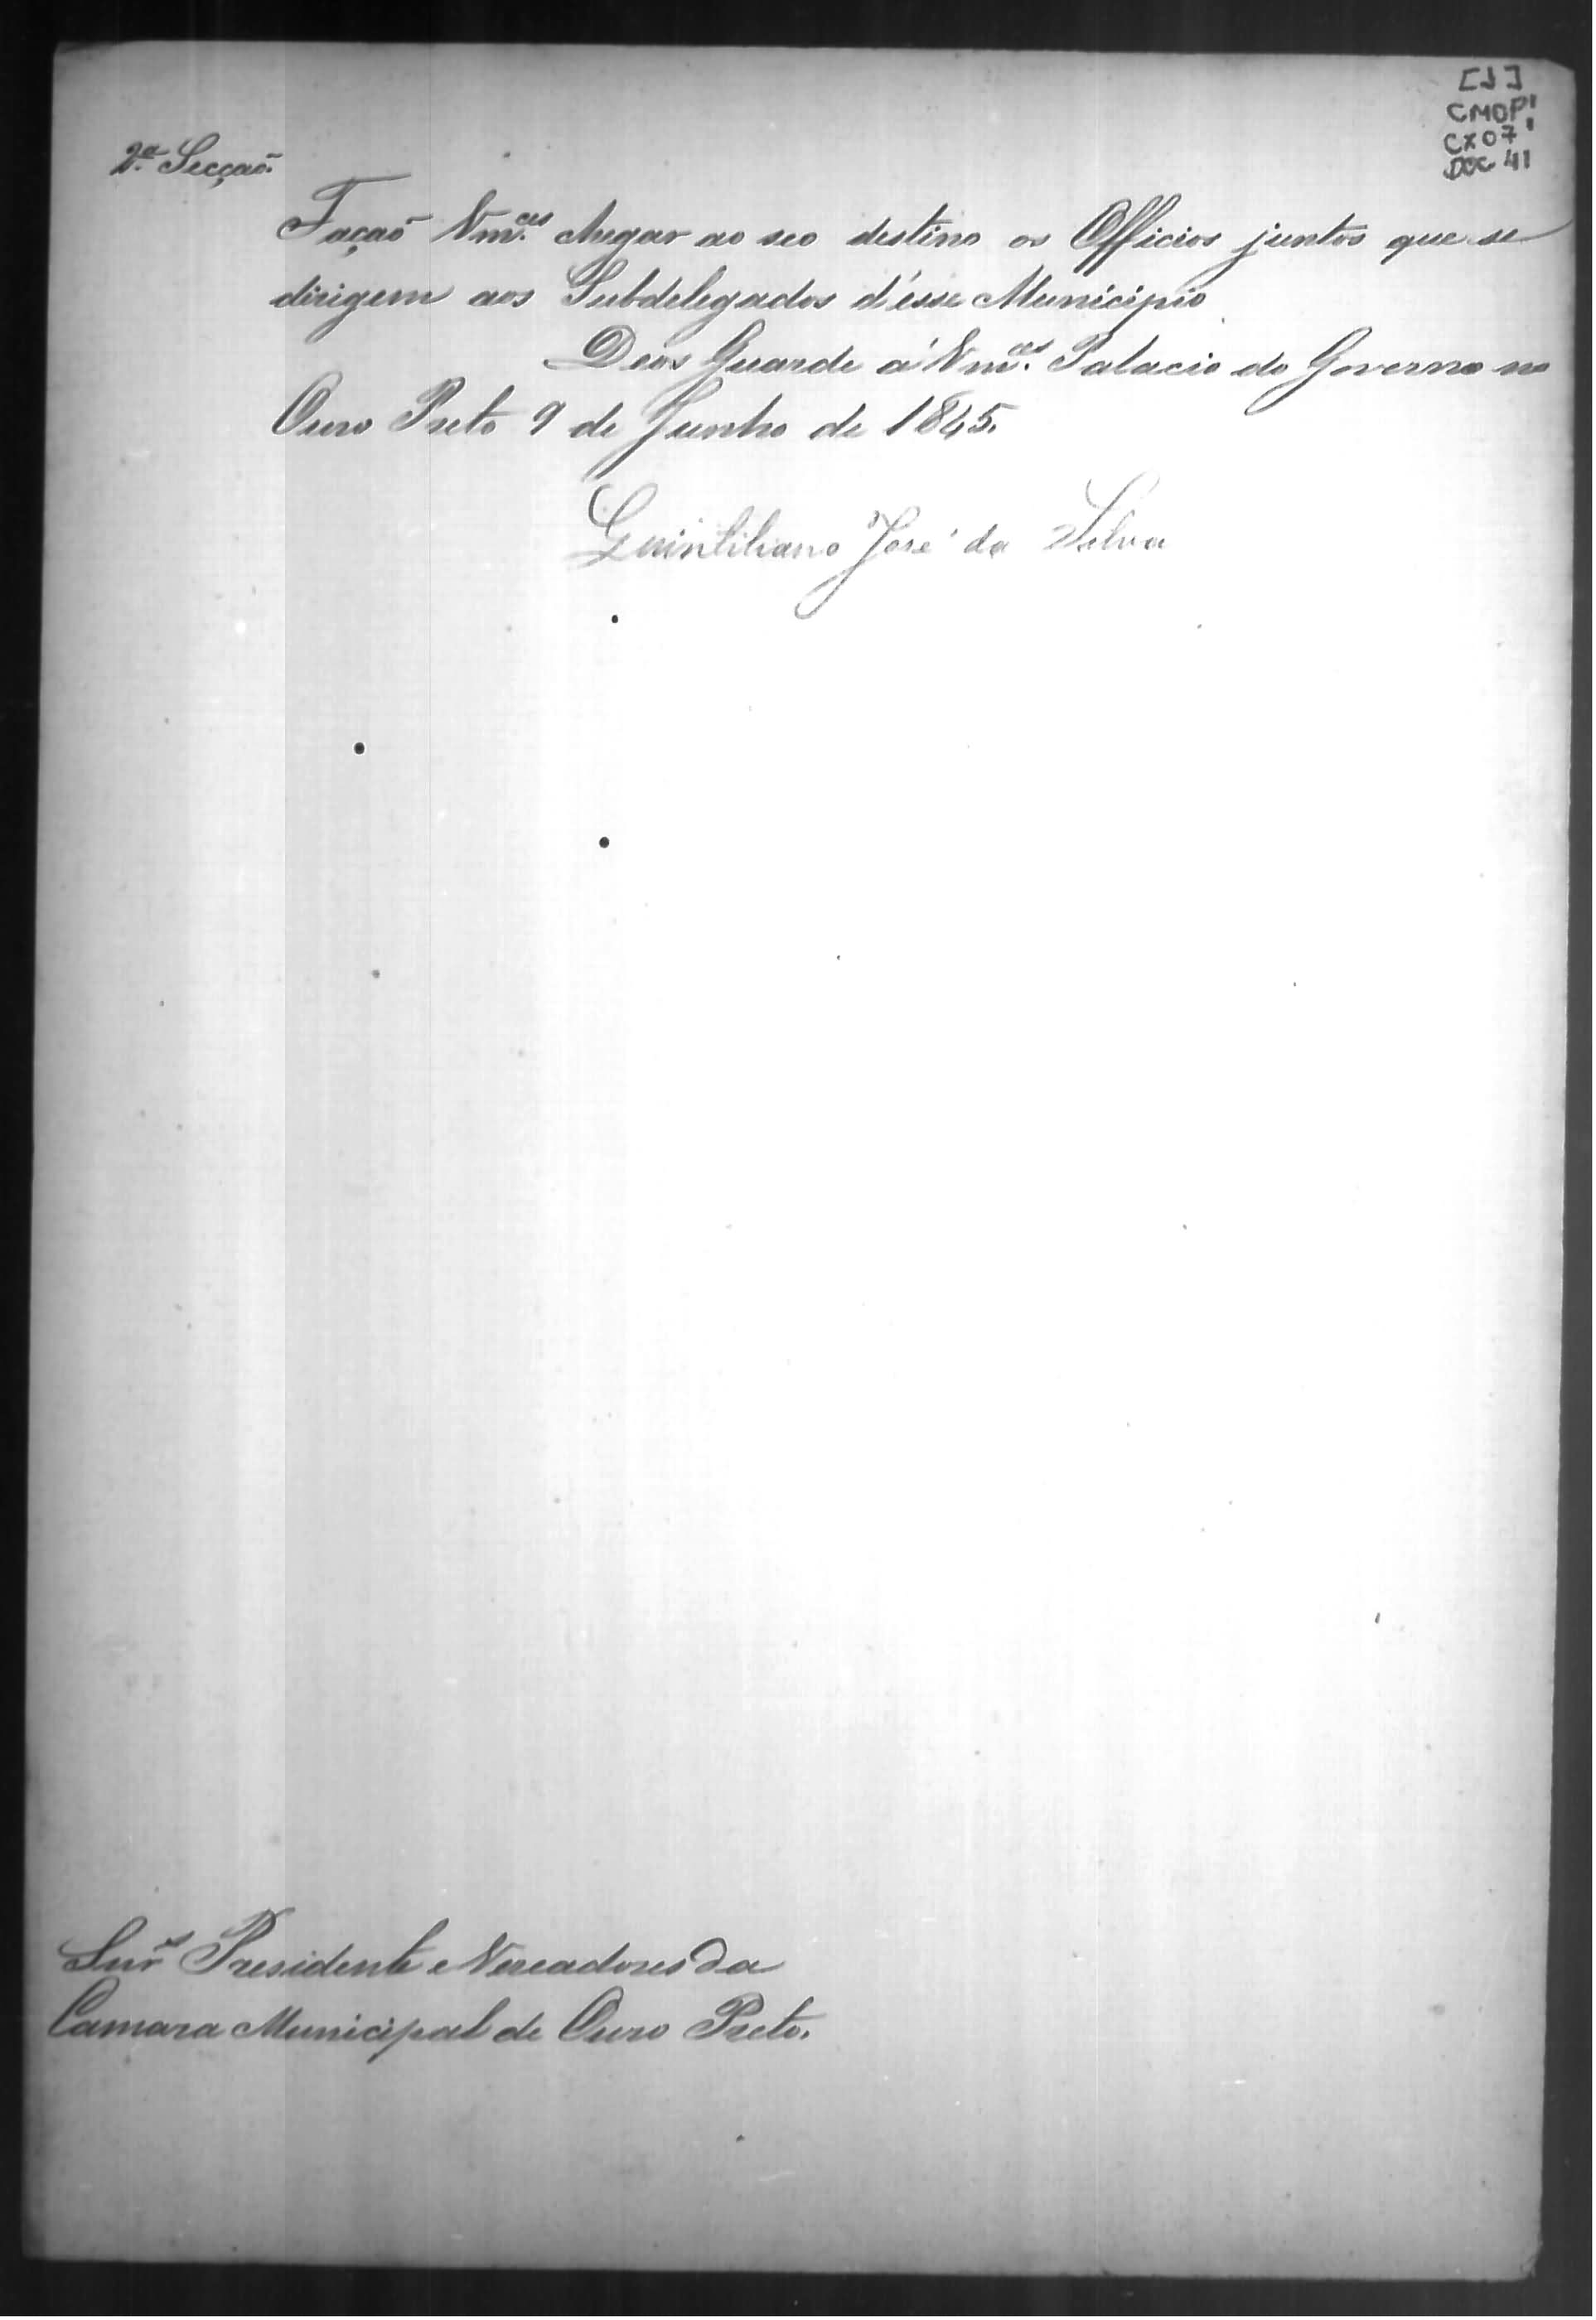 [1]
CMOP
CX07
DOC 41
2.ª Secçaõ.
Façaõ Vm.ces chegar ao seo destino os Officios juntos que se
dirigem aos Subdelegados d'ésse Municipio
Deos Guarde á Vm.ces Palacio do Governo no
Ouro Preto 9 de Junho de 1845.
Quintiliano José da Silva
Snr.s Presidente e Vereadores da
Camara Municipal de Ouro Preto.